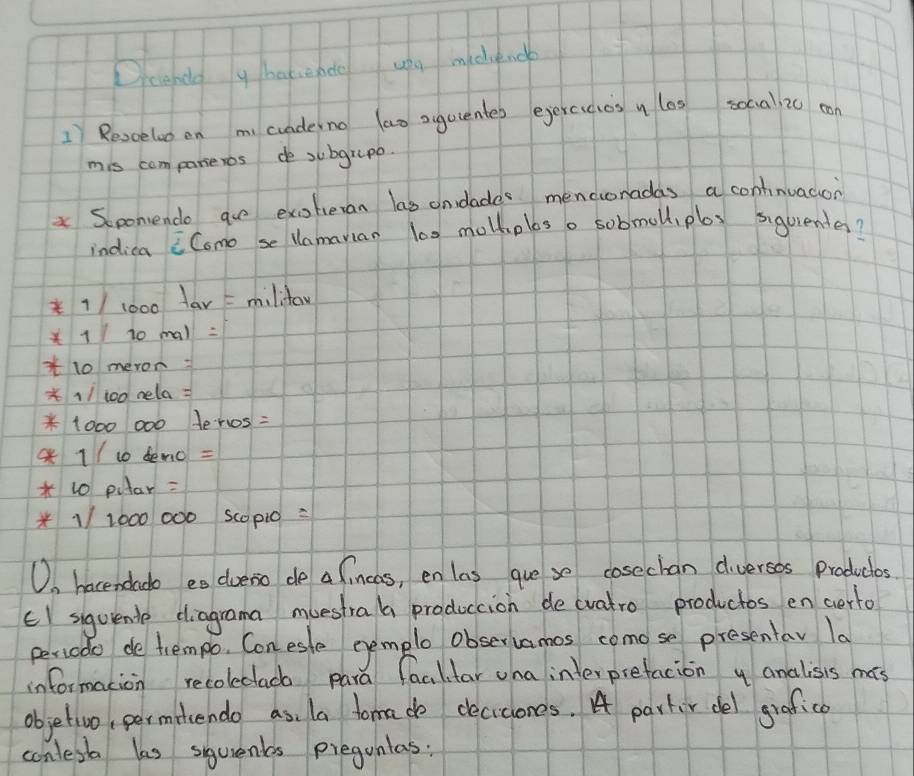 Diciendo y haciendo voy midiendo
1) Resuelvo en mi cuaderno las siguientes ejercicios y los socializo con
mis compañeros de subgrupo.
* Suponiendo que existieran las unidades mencionadas a continuacion
indica ¿Como se llamarian los multiplos o submultiplos siguientes?
* 1/1000 tar = militar
* 1/10 mal =
* 10 meron =
* 1/100 nela =
* 1000 000 terios =
* 1/10 demo =
* 10 pilar =
* 1/1000 000 scopio =
Un hacendado es dueño de 4 fincas, en las que se cosechan diversos Productos.
El siguiente diagrama muestra la producción de cuatro productos en cierto
periodo de tiempo. Con este ejemplo Observamos como se presentar la
información recolectado para facilitar una interpretación y analisis mas
objetivo, permitiendo asi la toma de deciciones. A partir del grafico
contesta las siguientes preguntas: